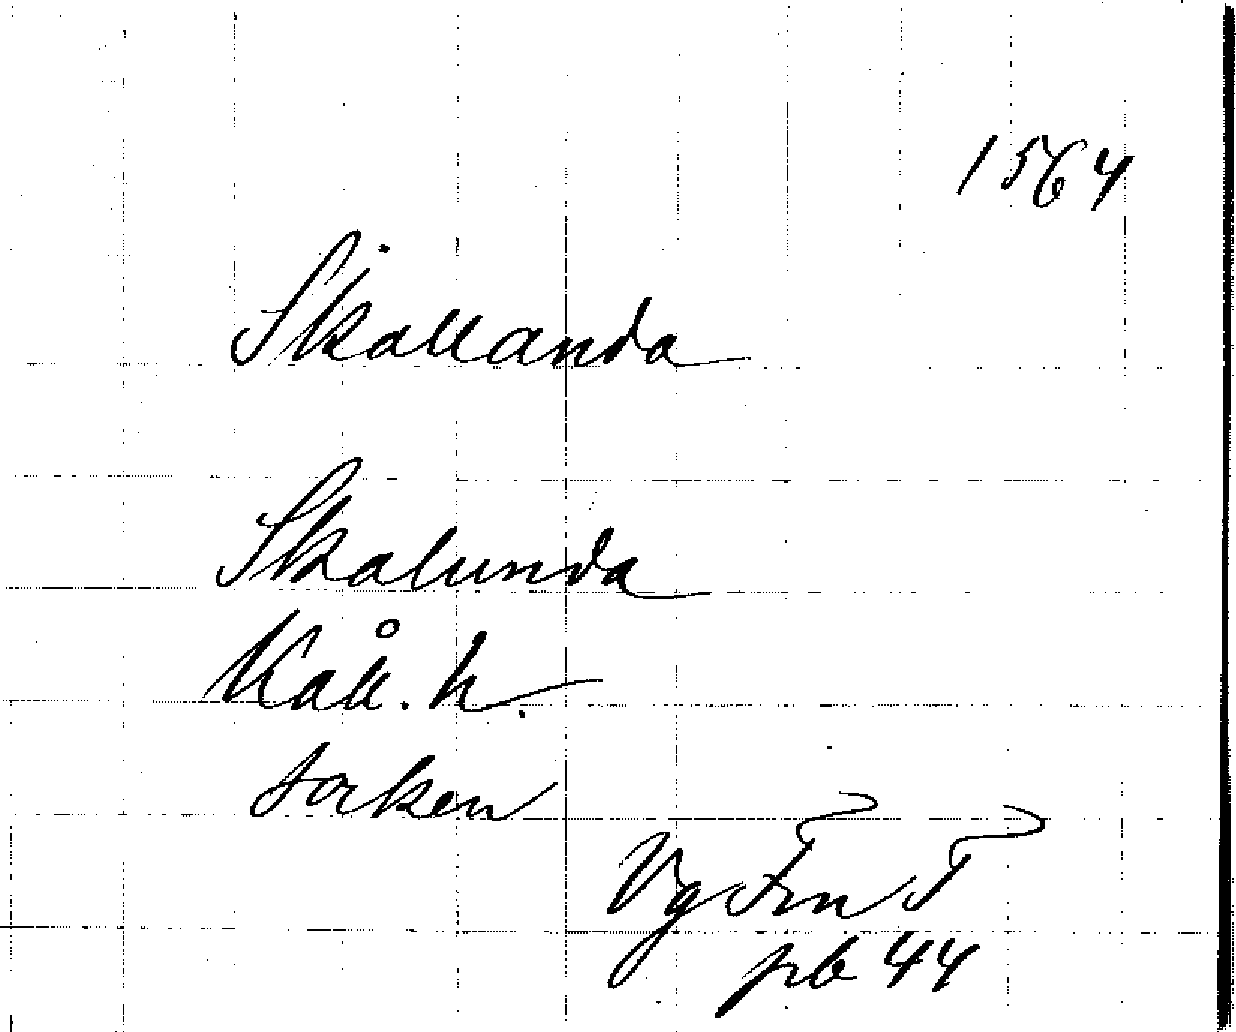 1564
Skallanda
Skalunda
Kåll. h.
socken
Vg Fm T
pb 44